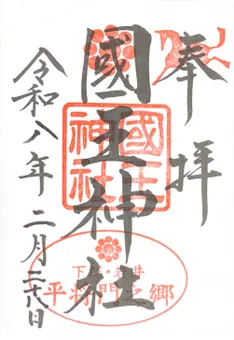 奉拝
國王神社
國王神社
下総・岩井
平将門之郷
令和八年二月二十八日